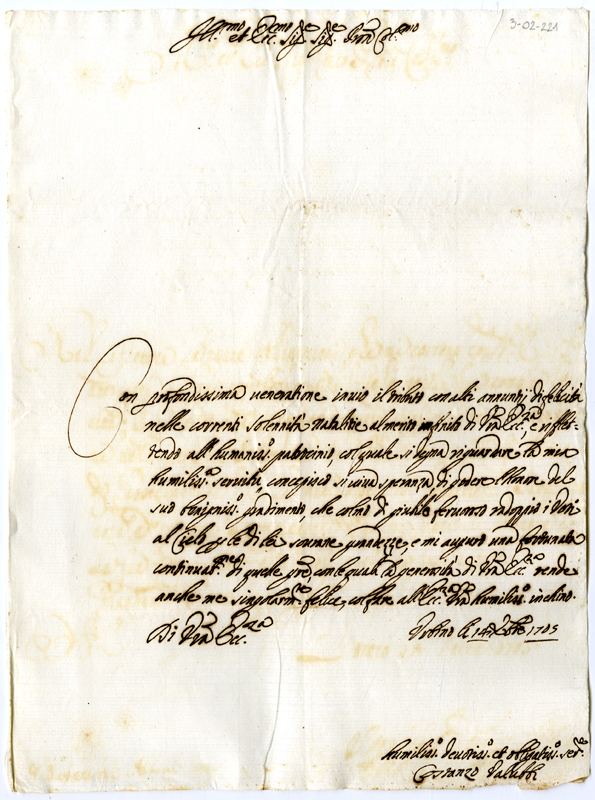 3-02-221
Ill.mo et Ecc.mo Sig.re Sig.re Pron Col.mo
Con profondissima veneratione invio il tributo con alti annuntij di felicità
nelle correnti solennità natalitie al merito infinito di Vra Ecc.za, e riflet-
tendo all'humaniss.o patrocinio, col quale si degna riguardare la mia
humiliss.a servitù, concepisco sì viva speranza di godere l'honore del
suo benigniss.o gradimento, che colmo di giubilo fervoroso raddoppio i voti
al Cielo p le di lei sovrane grandezze, e mi auguro una fortunata
continuat.ne di quelle gre, con le quali la generosità di Vra Ecc.za rende
anche me singolarm.te felice, col fare all'Ecc.za Vra humiliss.o inchino.
Di Vra Ecc.za
Urbino li 14 Xbre 1705
Humiliss.o devotiss.o et obligatiss.o ser.re
Costanzo